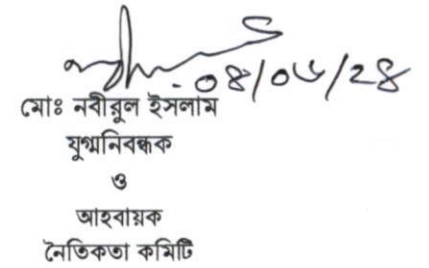 ০৪/০৬/২৪
মোঃ নবীরুল ইসলাম
যুগ্মনিবন্ধক
ও
আহবায়ক
নৈতিকতা কমিটি